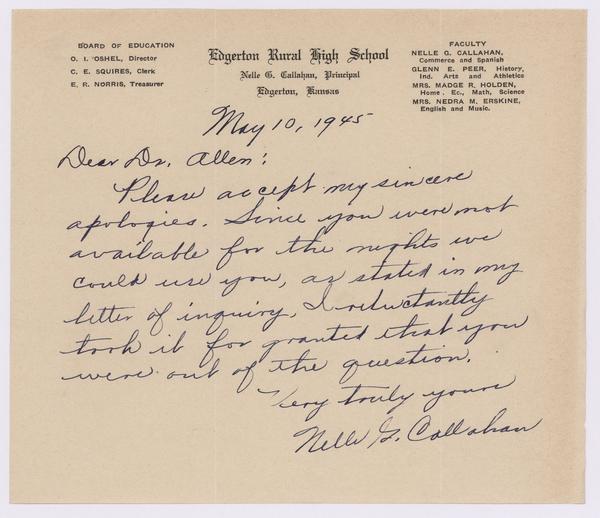 BOARD OF EDUCATION
O. I. 'OSHEL, Director
C. E. SQUIRES, Clerk
E. R. NORRIS, Treasurer
Edgerton Rural High School
Nelle G. Callahan, Principal
Edgerton, Kansas
FACULTY
NELLE G. CALLAHAN,
Commerce and Spanish
GLENN E. PEER, History,
Ind. Arts and Athletics
MRS. MADGE R. HOLDEN,
Home. Ec., Math, Science
MRS. NEDRA M. ERSKINE,
English and Music.
May 10, 1945
Dear Dr. Allen:
Please accept my sincere
apologies. Since you were not
available for the nights we
could use you, as stated in my
letter of inquiry, I reluctantly
took it for granted that you
were out of the question.
Very truly yours
Nelle G. Callahan